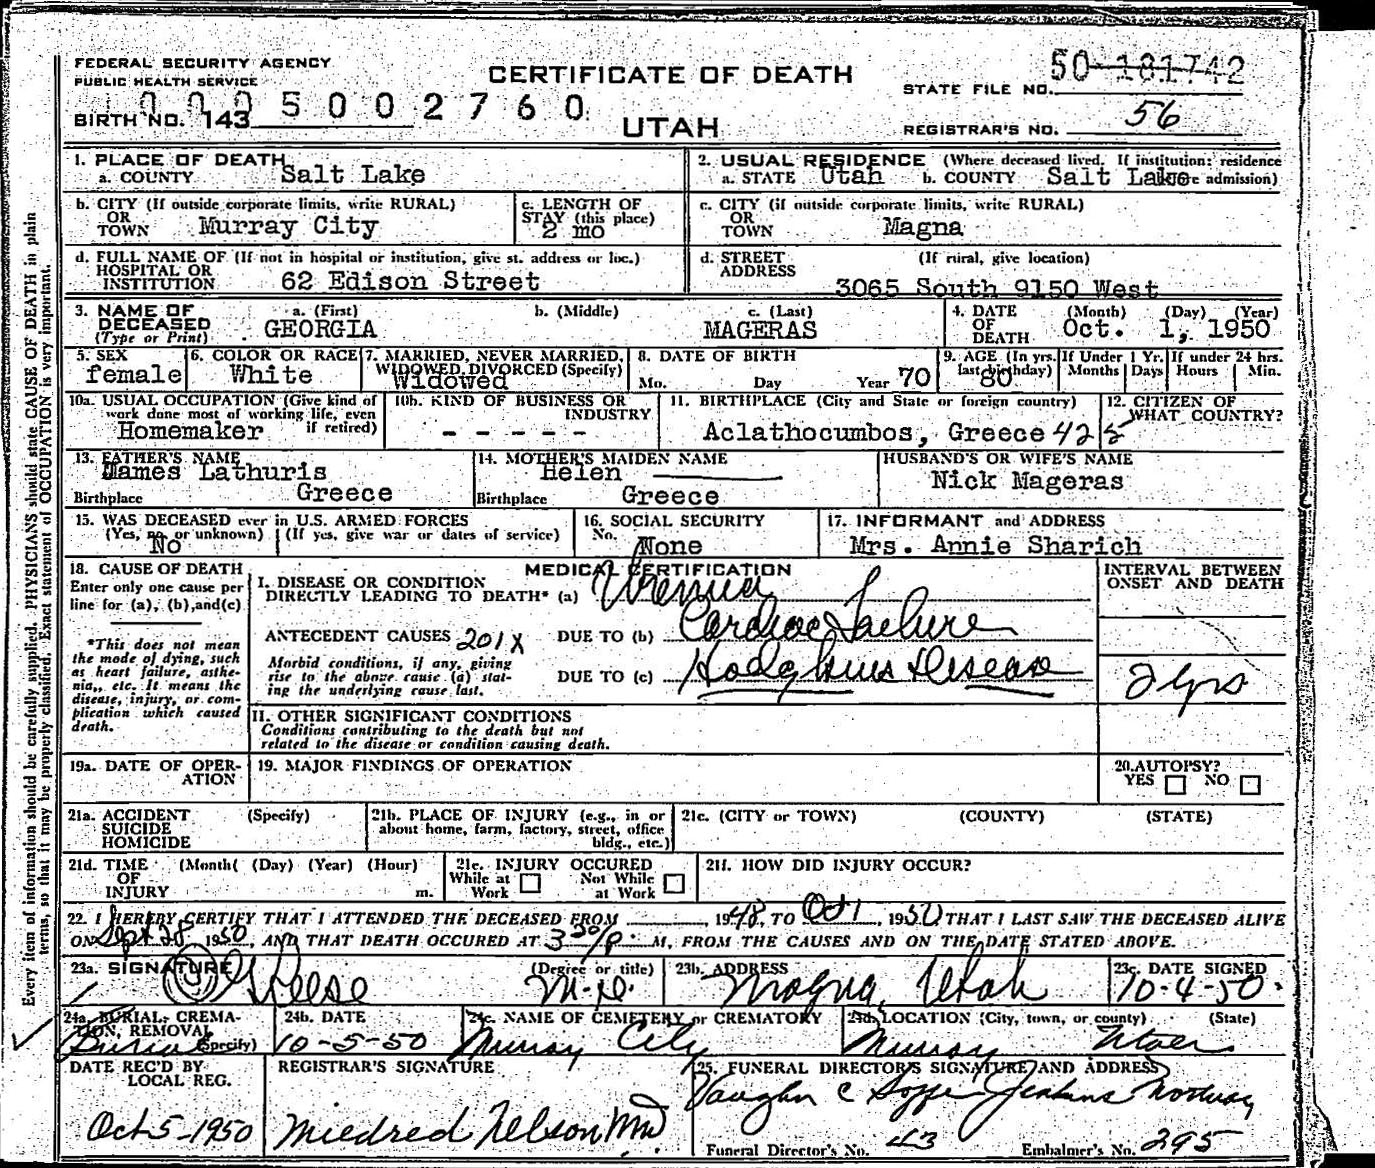 FEDERAL SECURITY AGENCY
PUBLIC HEALTH SERVICE
CERTIFICATE OF DEATH
50-181742
STATE FILE NO.
0005002760
BIRTH NO. 143
UTAH
REGISTRAR'S NO. 56
1. PLACE OF DEATH
a. COUNTY Salt Lake
2. USUAL RESIDENCE (Where deceased lived. If institution: residence
a. STATE Utah b. COUNTY Salt Lake admission)
b. CITY (If outside corporate limits, write RURAL)
OR
TOWN Murray City
c. LENGTH OF
STAY (this place)
2 mo
c. CITY (if outside corporate limits, write RURAL)
OR
TOWN Magna
d. FULL NAME OF (If not in hospital or institution, give st. address or loc.)
HOSPITAL OR
INSTITUTION 62 Edison Street
d. STREET (If rural, give location)
ADDRESS
3065 South 9150 West
3. NAME OF
DECEASED
(Type or Print)
a. (First) b. (Middle) c. (Last)
GEORGIA MAGERAS
4. DATE (Month) (Day) (Year)
OF
DEATH Oct. 1, 1950
5. SEX
female
6. COLOR OR RACE
White
7. MARRIED, NEVER MARRIED,
WIDOWED, DIVORCED (Specify)
Widowed
8. DATE OF BIRTH
Mo. Day Year 70
9. AGE (In yrs. last birthday)
80
If Under 1 Yr.
Months Days
If under 24 hrs.
Hours Min.
10a. USUAL OCCUPATION (Give kind of
work done most of working life, even
if retired)
Homemaker
10b. KIND OF BUSINESS OR
INDUSTRY
- - - - -
11. BIRTHPLACE (City and State or foreign country)
Aclathocumbos, Greece 42
12. CITIZEN OF
WHAT COUNTRY?
13. FATHER'S NAME
James Lathuris
Birthplace Greece
14. MOTHER'S MAIDEN NAME
Helen
Birthplace Greece
HUSBAND'S OR WIFE'S NAME
Nick Mageras
15. WAS DECEASED ever in U.S. ARMED FORCES
(Yes, no, or unknown) (If yes, give war or dates of service)
No
16. SOCIAL SECURITY
No. None
17. INFORMANT and ADDRESS
Mrs. Annie Sharich
18. CAUSE OF DEATH
Enter only one cause per
line for (a), (b), and (c)
*This does not mean
the mode of dying, such
as heart failure, asthe-
nia, etc. It means the
disease, injury, or com-
plication which caused
death.
MEDICAL CERTIFICATION
I. DISEASE OR CONDITION
DIRECTLY LEADING TO DEATH* (a) Uremia
ANTECEDENT CAUSES 201X DUE TO (b) Cardiac Failure
Morbid conditions, if any, giving
rise to the above cause (a) stat-
ing the underlying cause last.
DUE TO (c) Hodgkins Disease
INTERVAL BETWEEN
ONSET AND DEATH
2 yrs
II. OTHER SIGNIFICANT CONDITIONS
Conditions contributing to the death but not
related to the disease or condition causing death.
19a. DATE OF OPER-
ATION
19. MAJOR FINDINGS OF OPERATION
20. AUTOPSY?
YES NO
21a. ACCIDENT (Specify)
SUICIDE
HOMICIDE
21b. PLACE OF INJURY (e.g., in or
about home, farm, factory, street, office
bldg., etc.)
21c. (CITY or TOWN) (COUNTY) (STATE)
21d. TIME (Month( (Day) (Year) (Hour)
OF
INJURY m.
21e. INJURY OCCURED
While at Work Not While at Work
21f. HOW DID INJURY OCCUR?
22. I HEREBY CERTIFY THAT I ATTENDED THE DECEASED FROM 1948, TO Oct 1, 1950 THAT I LAST SAW THE DECEASED ALIVE
ON Sept 28 1950, AND THAT DEATH OCCURED AT 3 20/P. M, FROM THE CAUSES AND ON THE DATE STATED ABOVE.
23a. SIGNATURE (Degree or title)
Reese M.D.
23b. ADDRESS
Magna, Utah
23c. DATE SIGNED
10-4-50.
24a. BURIAL, CREMA-
TION, REMOVAL
(Specify)
Burial
24b. DATE
10-5-50
24c. NAME OF CEMETERY or CREMATORY
Murray City
23d. LOCATION (City, town, or county) (State)
Murray Utah
DATE REC'D BY
LOCAL REG.
Oct 5-1950
REGISTRAR'S SIGNATURE
Mildred Nelson MD
25. FUNERAL DIRECTOR'S SIGNATURE AND ADDRESS
Vaughn C Jenkins Mortuary
Funeral Director's No. 43 Embalmer's No. 295
Every item of information should be carefully supplied. PHYSICIANS should state CAUSE OF DEATH in plain
terms, so that it may be properly classified. Exact statement of OCCUPATION is very important.